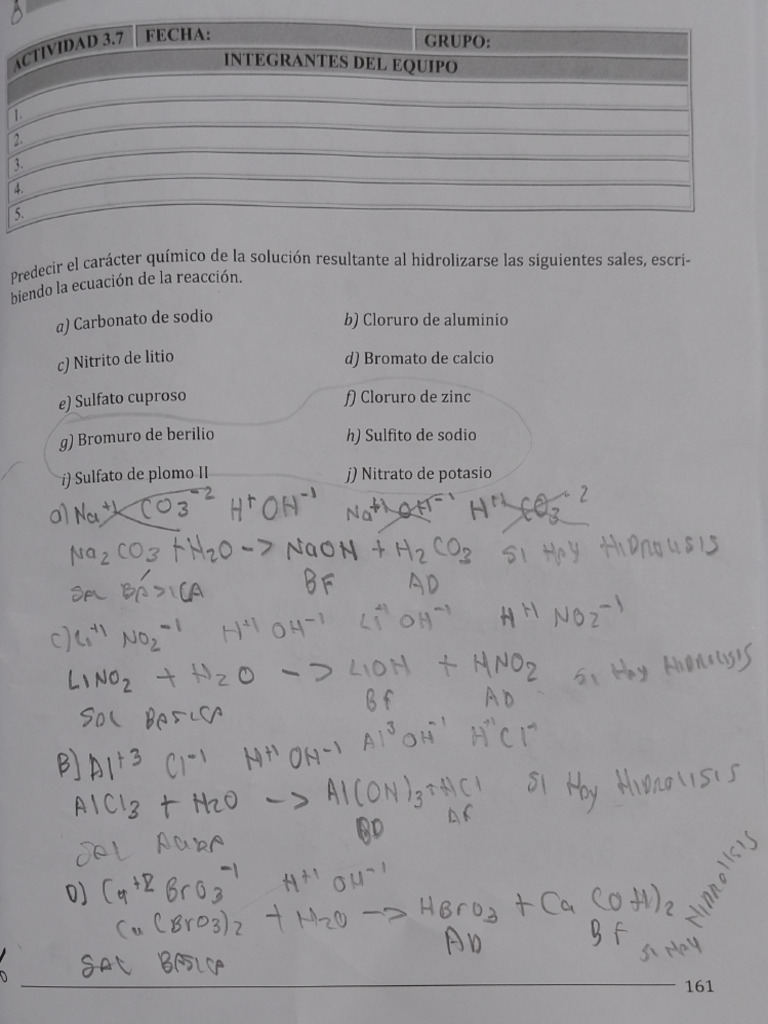 ACTIVIDAD 3.7 FECHA: GRUPO:
INTEGRANTES DEL EQUIPO
1.
2.
3.
4.
5.
Predecir el carácter químico de la solución resultante al hidrolizarse las siguientes sales, escri-
biendo la ecuación de la reacción.
a) Carbonato de sodio b) Cloruro de aluminio
c) Nitrito de litio d) Bromato de calcio
e) Sulfato cuproso f) Cloruro de zinc
g) Bromuro de berilio h) Sulfito de sodio
i) Sulfato de plomo II j) Nitrato de potasio
a) Na+1 CO3-2 H+ OH-1 Na+1 OH-1 H+1 CO3-2
Na2CO3 + H2O -> NaOH + H2CO3 SI HAY HIDROLISIS
SAL BÁSICA BF AD
C) Li+1 NO2-1 H+1 OH-1 Li+1 OH-1 H+1 NO2-1
LINO2 + H2O -> LIOH + HNO2 SI HAY HIDROLISIS
SAL BASICA BF AD
B) Al+3 Cl-1 H+1 OH-1 Al3 OH-1 H+1 Cl-
AlCl3 + H2O -> Al(OH)3 + HCl SI HAY HIDROLISIS
SAL ACIDA BD AF
D) Ca+2 BrO3-1 H+1 OH-1
Ca(BrO3)2 + H2O -> HBrO3 + Ca(OH)2 SI HAY HIDROLISIS
SAL BASICA AD BF
161